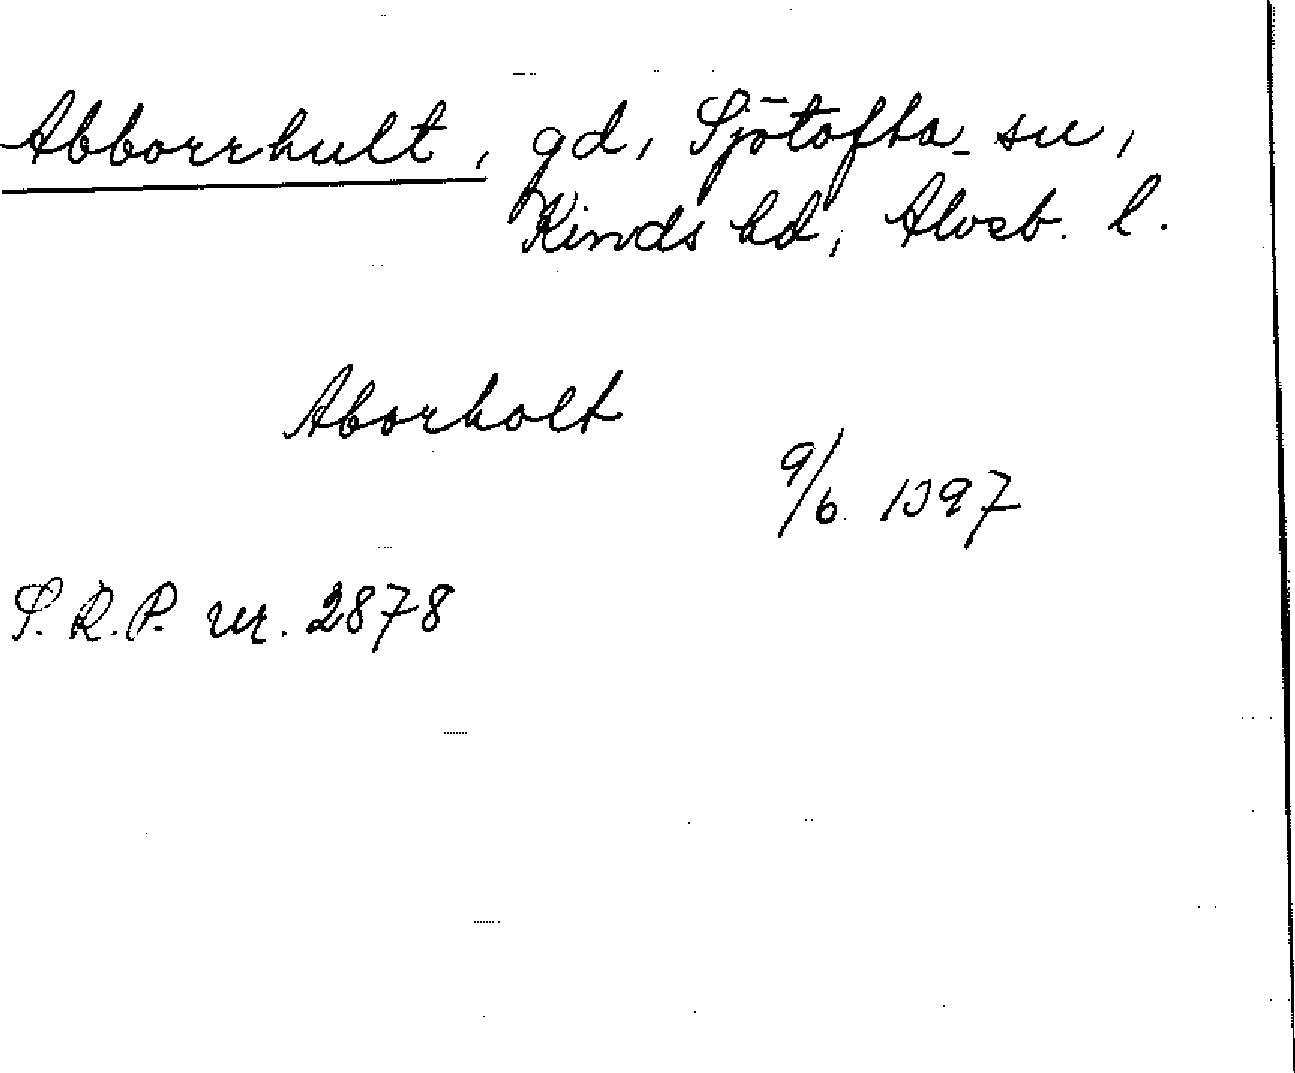 Abborrhult, gd, Sjötofta sn,
Kinds hd, Älvsb. l.
Aborholt
9/6 1397
S.R.P. nr. 2878